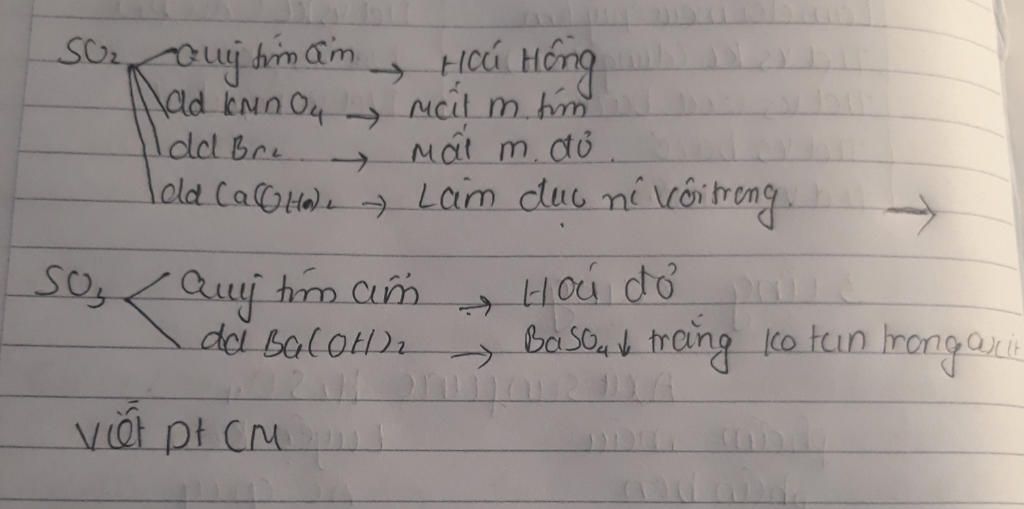 SO₂ Quỳ tím ẩm → Hoá Hồng
dd KMnO₄ → Mất m. tím
dd Br₂ → Mất m. đỏ.
dd Ca(OH)₂ → Làm đục nc vôi trong. →
SO₃ Quỳ tím ẩm → Hoá đỏ
dd Ba(OH)₂ → BaSO₄↓ trắng ko tan trong axit
Viết pt CM